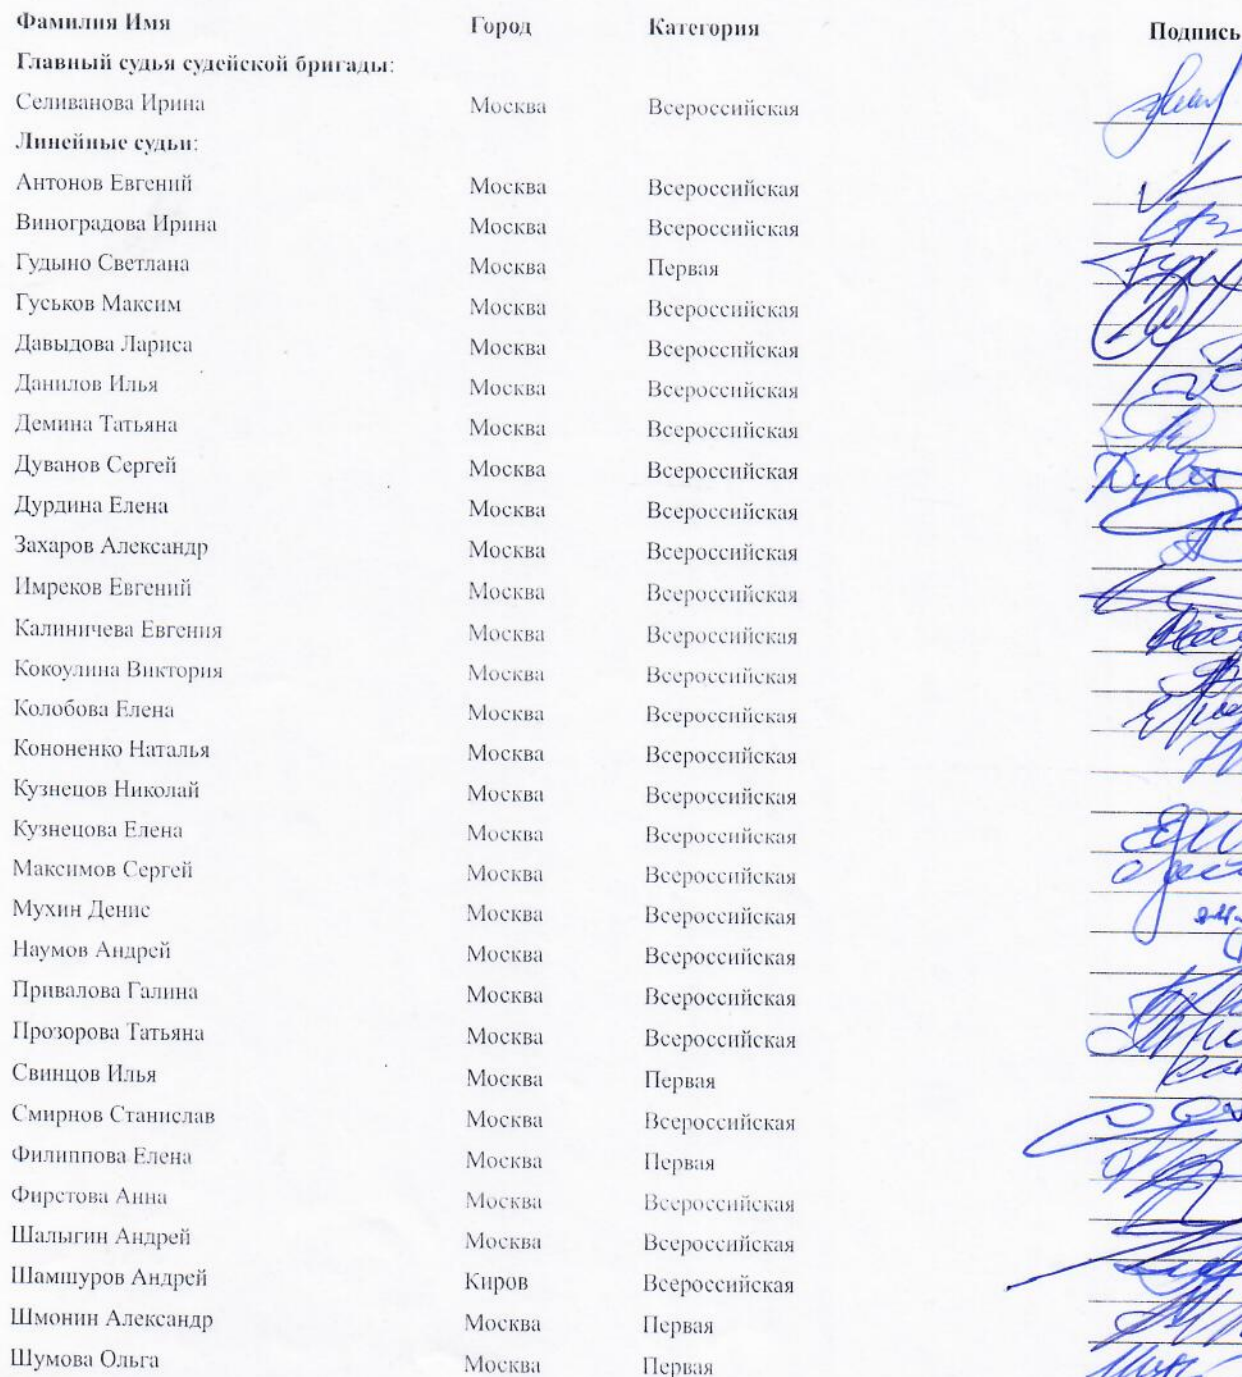 Фамилия Имя Город Категория Подпись
Главный судья судейской бригады:
Селиванова Ирина Москва Всероссийская
Линейные судьи:
Антонов Евгений Москва Всероссийская
Виноградова Ирина Москва Всероссийская
Гудыно Светлана Москва Первая
Гуськов Максим Москва Всероссийская
Давыдова Лариса Москва Всероссийская
Данилов Илья Москва Всероссийская
Демина Татьяна Москва Всероссийская
Дуванов Сергей Москва Всероссийская
Дурдина Елена Москва Всероссийская
Захаров Александр Москва Всероссийская
Имреков Евгений Москва Всероссийская
Калиничева Евгения Москва Всероссийская
Кокоулина Виктория Москва Всероссийская
Колобова Елена Москва Всероссийская
Кононенко Наталья Москва Всероссийская
Кузнецов Николай Москва Всероссийская
Кузнецова Елена Москва Всероссийская
Максимов Сергей Москва Всероссийская
Мухин Денис Москва Всероссийская
Наумов Андрей Москва Всероссийская
Привалова Галина Москва Всероссийская
Прозорова Татьяна Москва Всероссийская
Свинцов Илья Москва Первая
Смирнов Станислав Москва Всероссийская
Филиппова Елена Москва Первая
Фирстова Анна Москва Всероссийская
Шалыгин Андрей Москва Всероссийская
Шамшуров Андрей Киров Всероссийская
Шмонин Александр Москва Первая
Шумова Ольга Москва Первая